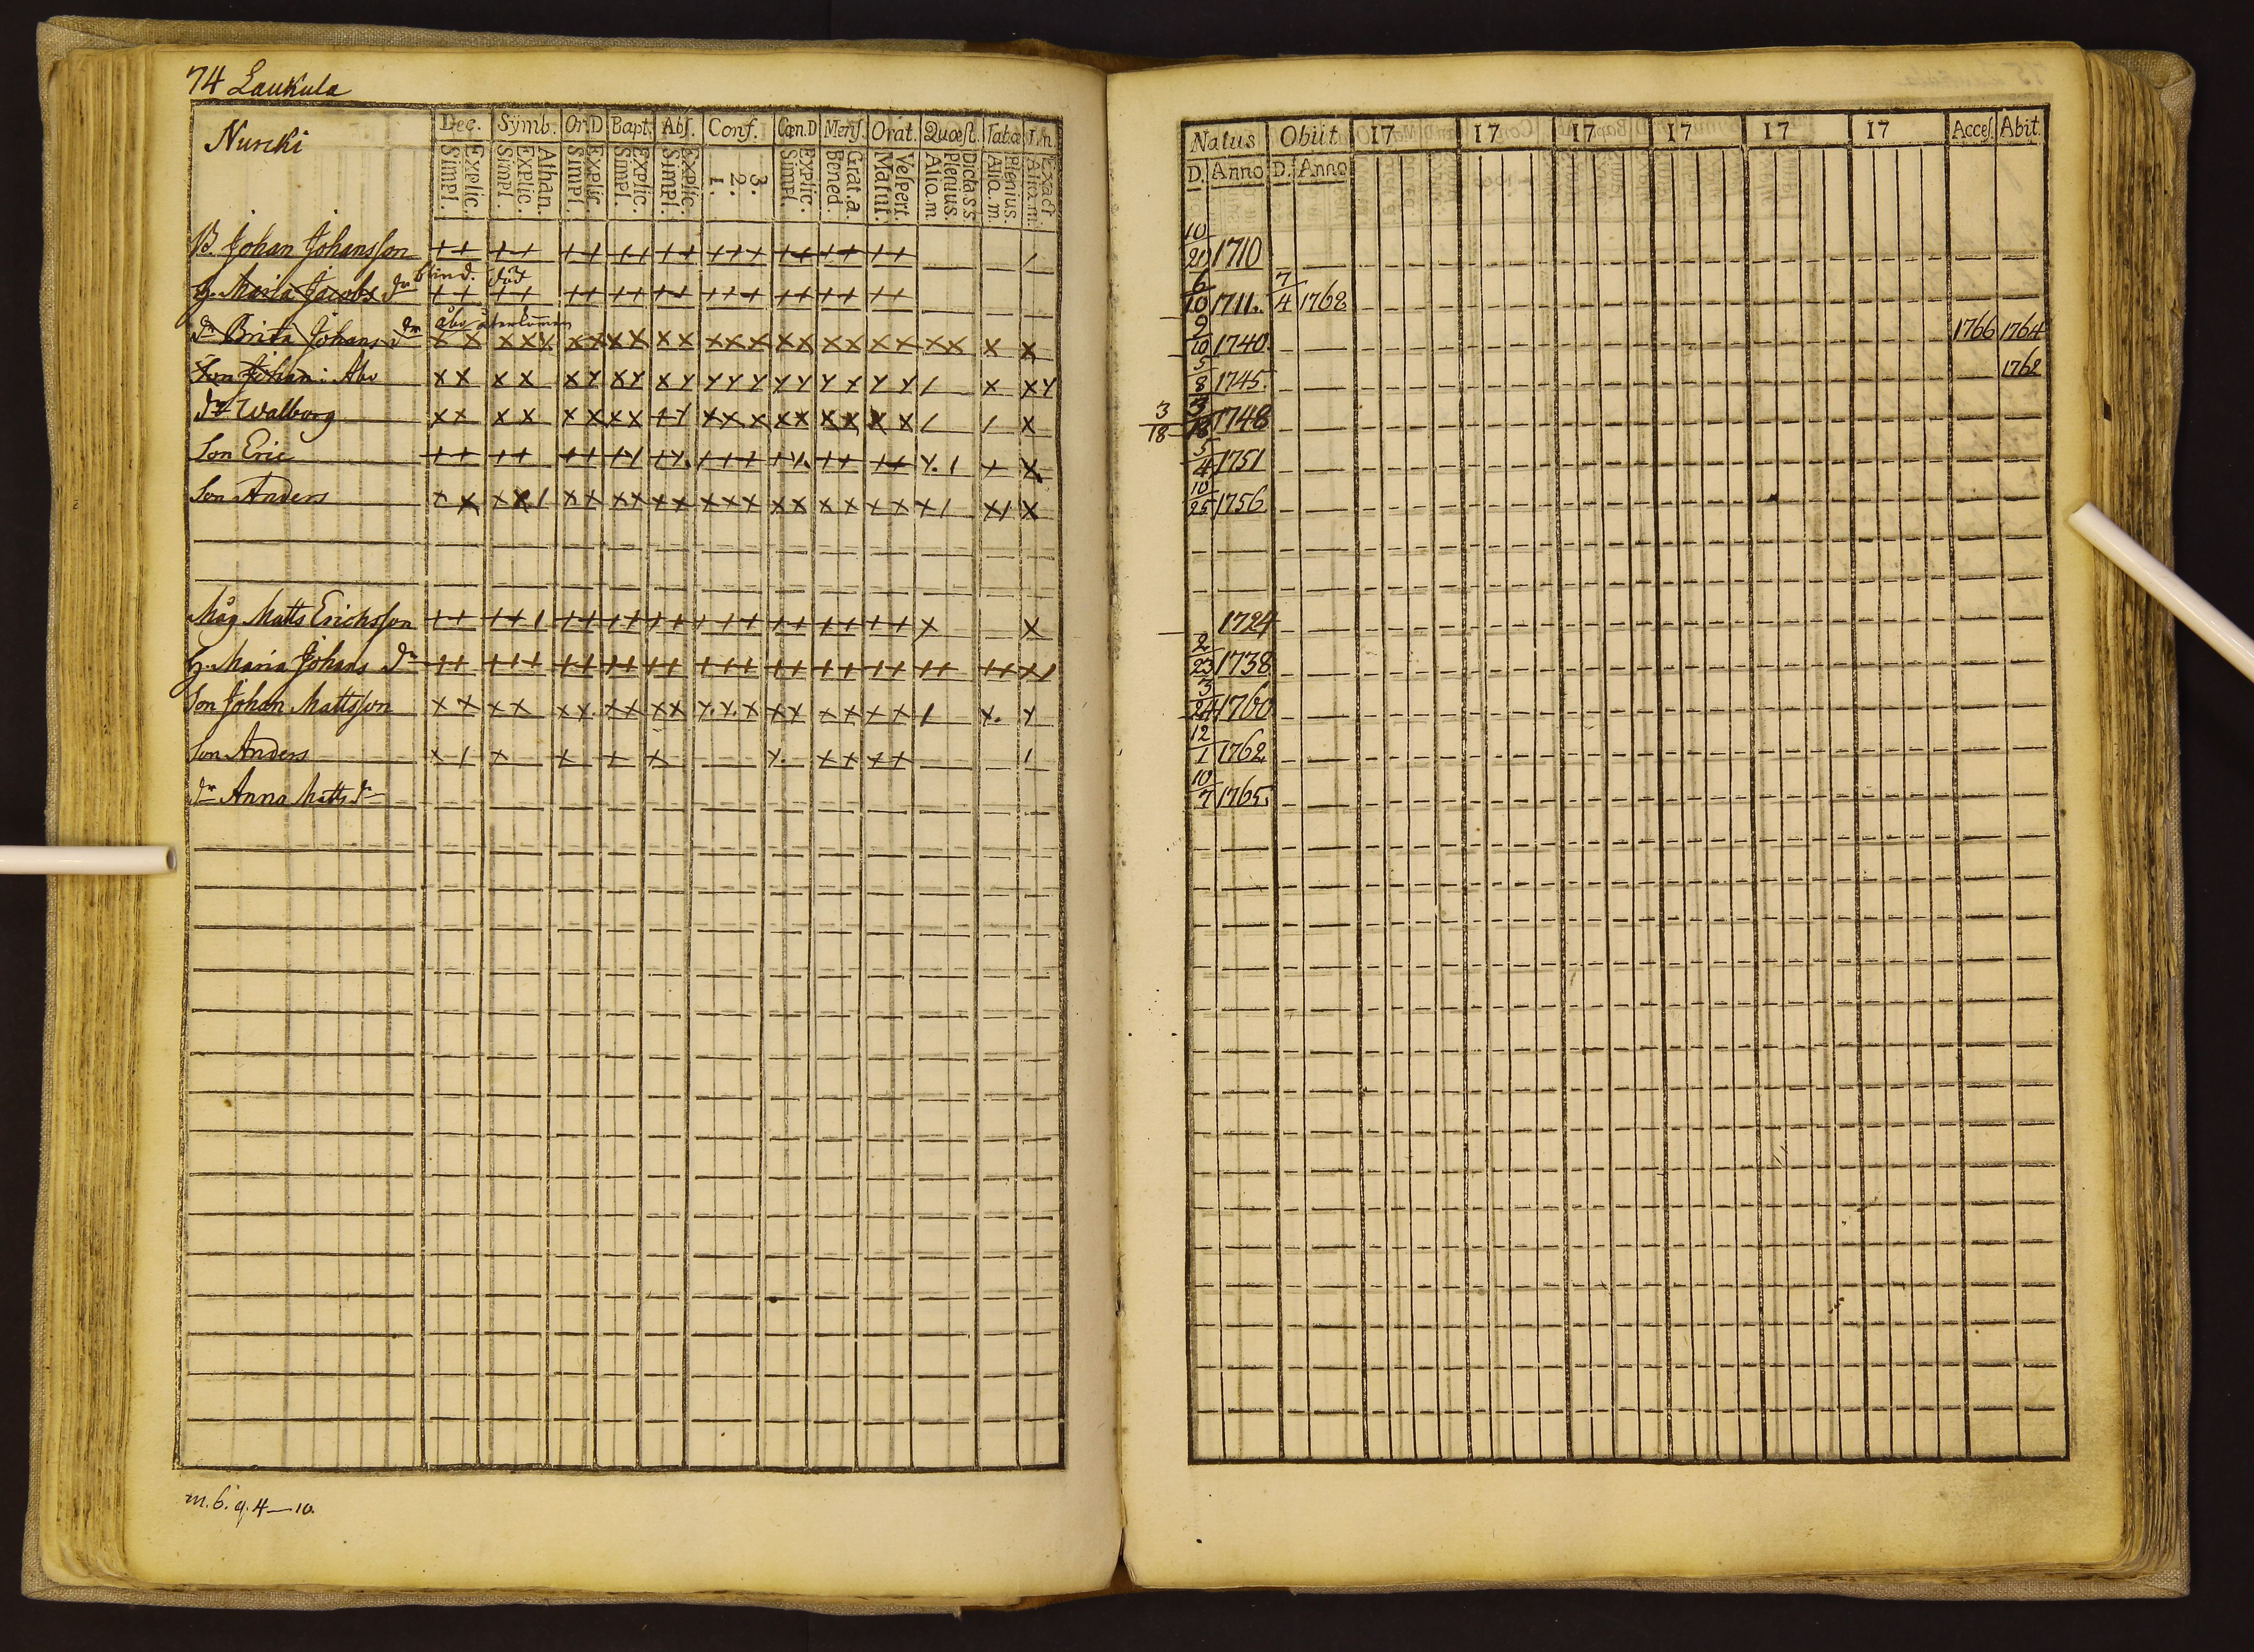 74 Laukula
Nurcki
Dec. Symb. Or.D Bapt. Abs. Conf. Cœn.D Mens. Orat. Quæst. Tabæ
Simpl. Explic. Simpl. Explic. Athan. Simpl. Explic. Simpl. Explic. Simpl. Explic. 1. 2. 3. Simpl. Explic. Bened. Grat.a. Matut. Vespert. Aliq.m. Plenius. Dicta s.s. Aliq.m. Plenius. Aliq.m. Exact
B. Johan Johansson ++ ++ ++ ++ ++ +++ ++ ++ ++
blind. död
H. Maria Jacobs dr ++ ++ ++ ++ ++ +++ ++ ++ ++
åbo återkommen
dr Brita Johans dr x x x x x x x x x x x x x x x x x x x x x x x x
Son Johan: Abo
dr Walborg
Son Eric
Son Anders
Måg Matts Erichsson
H. Maria Johans dr
Son Johan Mattsson
Son Anders
dr Anna Matts dr
m. 6. q. 4 — 10.
Natus Obiit 17 17 17 17 17 17 Acces. Abit.
D. Anno D. Anno
10/20 1710
6/10 1711. 7/4 1768
9/10 1740. 1766 1764
5/8 1745. 1762
3/18 3/18 1748
5/4 1751
10/25 1756
1724
2/23 1738
3/24 1760
12/1 1762
10/7 1765.